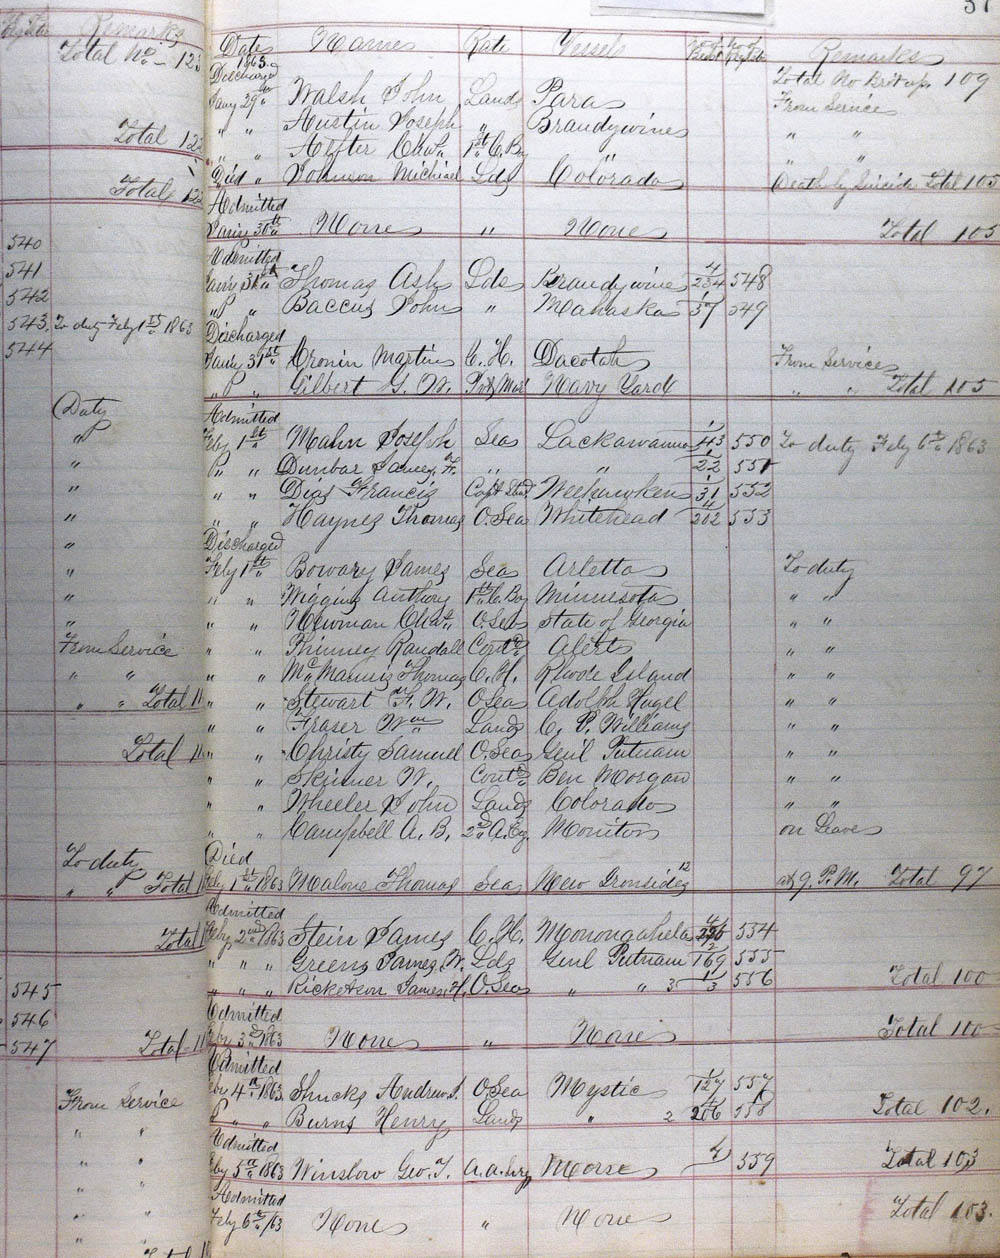 Remarks
Total No - 123
Total 122
Totals 122
540
541
542
543. To duty Feby 1st 1863
544
Duty
"
"
"
"
"
"
"
"
From Service
" "
" " Total 11
Total 11
To duty
" " Total 1
Total 1
545
546
547 Total 11
From Service
" "
" "
" "
" "
37
Dates Names Rate Vessels Remarks
1863. Total No Brot up 109
Discharged
Jany 29th Walsh John Lands Para From Service
" " Austin Joseph " Brandywine " "
" " Chas. 1st C. Boy " " "
Died " Johnson Michael Lds Colorado Death by Suicide Total 105
Admitted
Jany 30th None " None Total 105
Admitted
Jany 31st Thomas Ash Lds Brandywine 4/254 548
" " Baccus John " Mahaska 1/57 549
Discharged
Jany 31st Cronin Martin C. H. Dacotah From Service
" " Gilbert G. W. Navy Yard " " Total 105
Admitted
Feby 1st Mahn Joseph Sea Lackawanna 1/43 550 To duty Feby 6th 1863
" " Dunbar James F. " " 1/22 551
" " Dias Francis Weehawken 1/31 552
" " Haynes Thomas O. Sea Whitehead 4/202 553
Discharged
Feby 1st Bowary James Sea Arletta To duty
" " Wiggins Anthony 1st C. Boy Minnesota " "
" " Newman Chas. O. Sea State of Georgia " "
" " Phinney Randall Contd. Alert " "
" " McMannis Thomas C. H. Rhode Island " "
" " Stewart F. W. O Sea Adolph Hugel " "
" " Fraser Wm Lands C. P. Williams " "
" " Christy Samuel O. Sea Genl Putnam " "
" " Skinner W. Contd. Ben Morgan " "
" " Wheeler John Lands Colorado " "
" " Campbell A. B. 2nd A. Eng. Monitor on Leave
Died
Feby 1st 1863 Malone Thomas Sea New Ironsides 12 at 9. P. M. Total 97
Admitted
Feby 2nd 1863 Stein James C. H. Monongahela 554
" " " Greens James W. Lds Genl Putnam 2/169 555
" " " Ricketson James H. O. Sea " " 3 1/3 556 Total 100
Admitted
Feby 3d 1863 None " None Total 100
Admitted
Feby 4th 1863 Shucks Andrew J. O. Sea Mystic 1/127 557
" " " Burns Henry Lands " 2 4/206 558 Total 102.
Admitted
Feby 5th 1863 Winslow Geo. T. None 4/ 559 Total 103
Admitted
Feby 6th /63 None " None Total 103.